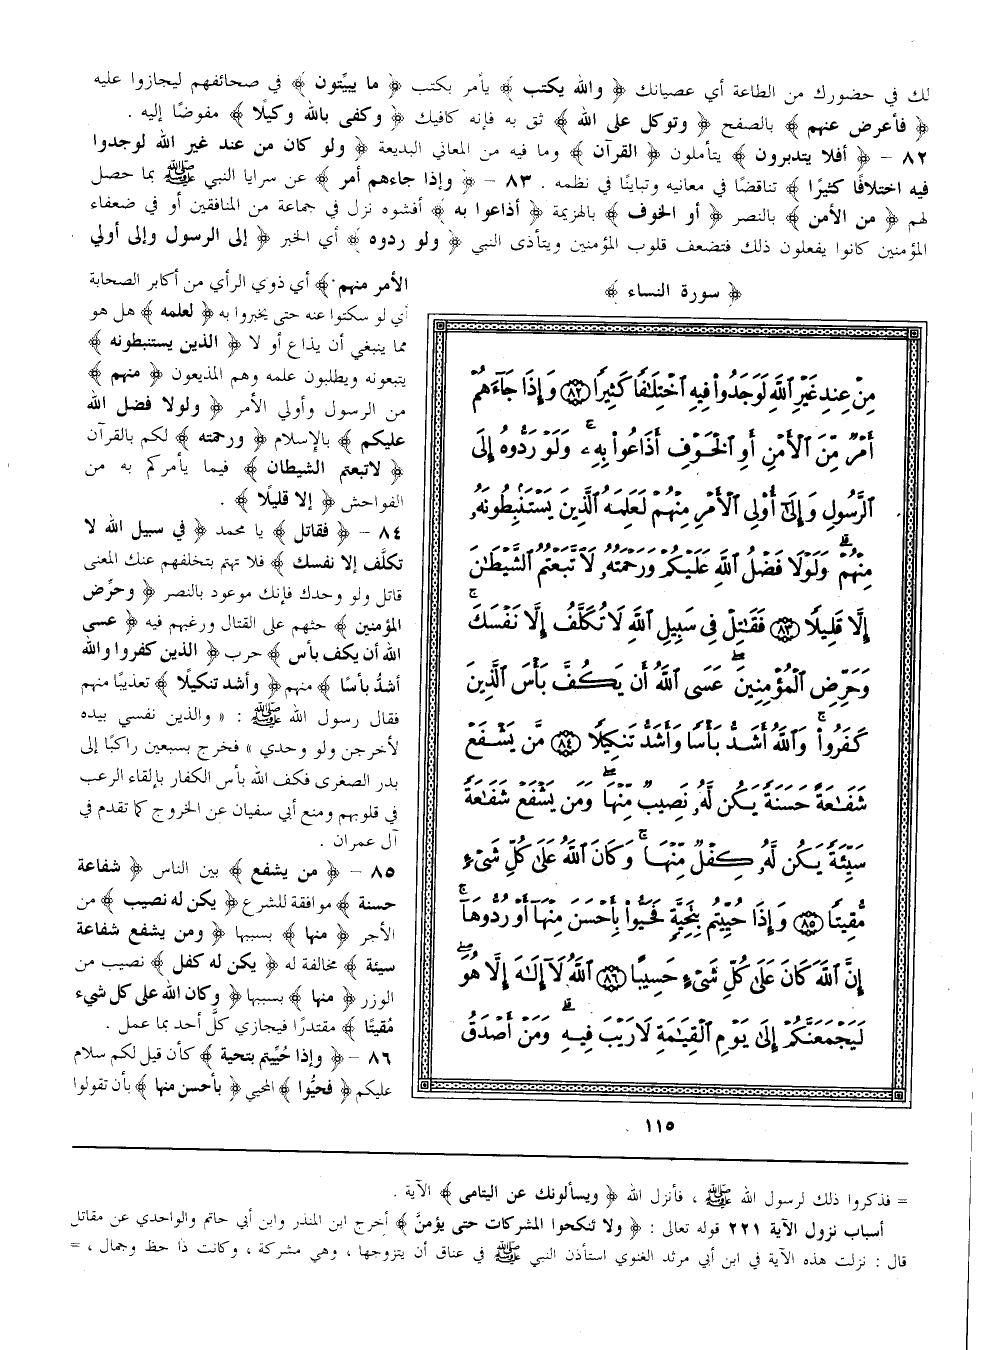 لك في حضورك من الطاعة أي عصيانك ﴿ والله يكتب ﴾ يأمر بكتب ﴿ ما يبيّتون ﴾ في صحائفهم ليجازوا عليه
﴿ فأعرض عنهم ﴾ بالصفح ﴿ وتوكل على الله ﴾ ثق به فإنه كافيك ﴿ وكفى بالله وكيلًا ﴾ مفوضًا إليه .
٨٢ - ﴿ أفلا يتدبرون ﴾ يتأملون ﴿ القرآن ﴾ وما فيه من المعاني البديعة ﴿ ولو كان من عند غير الله لوجدوا
فيه اختلافًا كثيرًا ﴾ تناقضًا في معانيه وتباينًا في نظمه . ٨٣ - ﴿ وإذا جاءهم أمر ﴾ عن سرايا النبي ﷺ بما حصل
لهم ﴿ من الأمن ﴾ بالنصر ﴿ أو الخوف ﴾ بالهزيمة ﴿ أذاعوا به ﴾ أفشوه نزل في جماعة من المنافقين أو في ضعفاء
المؤمنين كانوا يفعلون ذلك فتضعف قلوب المؤمنين ويتأذى النبي ﴿ ولو ردوه ﴾ أي الخبر ﴿ إلى الرسول وإلى أولي
الأمر منهم ﴾ أي ذوي الرأي من أكابر الصحابة
أي لو سكتوا عنه حتى يخبروا به ﴿ لعلمه ﴾ هل هو
مما ينبغي أن يذاع أو لا ﴿ الذين يستنبطونه ﴾
يتبعونه ويطلبون علمه وهم المذيعون ﴿ منهم ﴾
من الرسول وأولي الأمر ﴿ ولولا فضل الله
عليكم ﴾ بالإسلام ﴿ ورحمته ﴾ لكم بالقرآن
﴿ لاتبعتم الشيطان ﴾ فيما يأمركم به من
الفواحش ﴿ إلا قليلًا ﴾ .
٨٤ - ﴿ فقاتل ﴾ يا محمد ﴿ في سبيل الله لا
تكلَّف إلا نفسك ﴾ فلا تهتم بتخلفهم عنك المعنى
قاتل ولو وحدك فإنك موعود بالنصر ﴿ وحرِّض
المؤمنين ﴾ حثهم على القتال ورغبهم فيه ﴿ عسى
الله أن يكف بأس ﴾ حرب ﴿ الذين كفروا والله
أشدُّ بأسًا ﴾ منهم ﴿ وأشد تنكيلًا ﴾ تعذيبًا منهم
فقال رسول الله ﷺ : « والذين نفسي بيده
لأخرجن ولو وحدي » فخرج بسبعين راكبًا إلى
بدر الصغرى فكف الله بأس الكفار بإلقاء الرعب
في قلوبهم ومنع أبي سفيان عن الخروج كما تقدم في
آل عمران .
٨٥ - ﴿ من يشفع ﴾ بين الناس ﴿ شفاعة
حسنة ﴾ موافقة للشرع ﴿ يكن له نصيب ﴾ من
الأجر ﴿ منها ﴾ بسببها ﴿ ومن يشفع شفاعة
سيئة ﴾ مخالفة له ﴿ يكن له كفل ﴾ نصيب من
الوزر ﴿ منها ﴾ بسببها ﴿ وكان الله على كل شيء
مُقيتًا ﴾ مقتدرًا فيجازي كلَّ أحد بما عمل .
٨٦ - ﴿ وإذا حُيِّيتم بتحية ﴾ كأن قيل لكم سلام
عليكم ﴿ فحيُّوا ﴾ المحيي ﴿ بأحسن منها ﴾ بأن تقولوا
﴿ سورة النساء ﴾
مِنْ عِندِ غَيْرِ ٱللَّهِ لَوَجَدُوا۟ فِيهِ ٱخْتِلَـٰفًا كَثِيرًا ﴿٨٢﴾ وَإِذَا جَآءَهُمْ
أَمْرٌ مِّنَ ٱلْأَمْنِ أَوِ ٱلْخَوْفِ أَذَاعُوا۟ بِهِۦ ۖ وَلَوْ رَدُّوهُ إِلَى
ٱلرَّسُولِ وَإِلَىٰٓ أُو۟لِى ٱلْأَمْرِ مِنْهُمْ لَعَلِمَهُ ٱلَّذِينَ يَسْتَنۢبِطُونَهُۥ
مِنْهُمْ ۗ وَلَوْلَا فَضْلُ ٱللَّهِ عَلَيْكُمْ وَرَحْمَتُهُۥ لَٱتَّبَعْتُمُ ٱلشَّيْطَـٰنَ
إِلَّا قَلِيلًا ﴿٨٣﴾ فَقَـٰتِلْ فِى سَبِيلِ ٱللَّهِ لَا تُكَلَّفُ إِلَّا نَفْسَكَ ۚ
وَحَرِّضِ ٱلْمُؤْمِنِينَ ۖ عَسَى ٱللَّهُ أَن يَكُفَّ بَأْسَ ٱلَّذِينَ
كَفَرُوا۟ ۚ وَٱللَّهُ أَشَدُّ بَأْسًا وَأَشَدُّ تَنكِيلًا ﴿٨٤﴾ مَّن يَشْفَعْ
شَفَـٰعَةً حَسَنَةً يَكُن لَّهُۥ نَصِيبٌ مِّنْهَا ۖ وَمَن يَشْفَعْ شَفَـٰعَةً
سَيِّئَةً يَكُن لَّهُۥ كِفْلٌ مِّنْهَا ۗ وَكَانَ ٱللَّهُ عَلَىٰ كُلِّ شَىْءٍ
مُّقِيتًا ﴿٨٥﴾ وَإِذَا حُيِّيتُم بِتَحِيَّةٍ فَحَيُّوا۟ بِأَحْسَنَ مِنْهَآ أَوْ رُدُّوهَآ ۗ
إِنَّ ٱللَّهَ كَانَ عَلَىٰ كُلِّ شَىْءٍ حَسِيبًا ﴿٨٦﴾ ٱللَّهُ لَآ إِلَـٰهَ إِلَّا هُوَ ۚ
لَيَجْمَعَنَّكُمْ إِلَىٰ يَوْمِ ٱلْقِيَـٰمَةِ لَا رَيْبَ فِيهِ ۗ وَمَنْ أَصْدَقُ
١١٥
= فذكروا ذلك لرسول الله ﷺ ، فأنزل الله ﴿ ويسألونك عن اليتامى ﴾ الآية .
أسباب نزول الآية ٢٢١ قوله تعالى : ﴿ ولا تنكحوا المشركات حتى يؤمنَّ ﴾ أخرج ابن المنذر وابن أبي حاتم والواحدي عن مقاتل
قال : نزلت هذه الآية في ابن أبي مرثد الغنوي استأذن النبي ﷺ في عناق أن يتزوجها ، وهي مشركة ، وكانت ذا حظ وجمال ، =